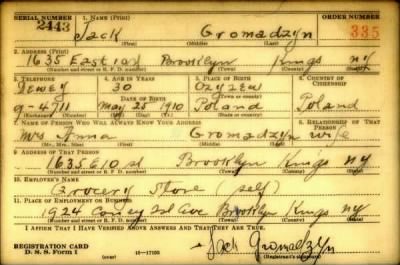 SERIAL NUMBER 1. NAME (Print) ORDER NUMBER
2443 Jack Gromadzyn 335
(First) (Middle) (Last)
2. ADDRESS (Print)
1635 East 10 st Brooklyn Kings NY
(Number and street or R. F. D. number) (Town) (County) (State)
3. TELEPHONE 4. AGE IN YEARS 5. PLACE OF BIRTH 6. COUNTRY OF CITIZENSHIP
Dewey 30
DATE OF BIRTH (Town or county)
9-4711 May 25 1910 Poland Poland
(Exchange) (Number) (Mo.) (Day) (Yr.) (State or country)
7. NAME OF PERSON WHO WILL ALWAYS KNOW YOUR ADDRESS 8. RELATIONSHIP OF THAT PERSON
Mrs Anna Gromadzyn wife
(Mr., Mrs., Miss) (First) (Middle) (Last)
9. ADDRESS OF THAT PERSON
1635 E 10 st Brooklyn Kings NY
(Number and street or R. F. D. number) (Town) (County) (State)
10. EMPLOYER'S NAME
Grocery Store (self)
11. PLACE OF EMPLOYMENT OR BUSINESS
1924 Coney Isl Ave Brooklyn Kings NY
(Number and street or R. F. D. number) (Town) (County) (State)
I AFFIRM THAT I HAVE VERIFIED ABOVE ANSWERS AND THAT THEY ARE TRUE.
REGISTRATION CARD
D. S. S. Form 1 (over) Jack Gromadzyn